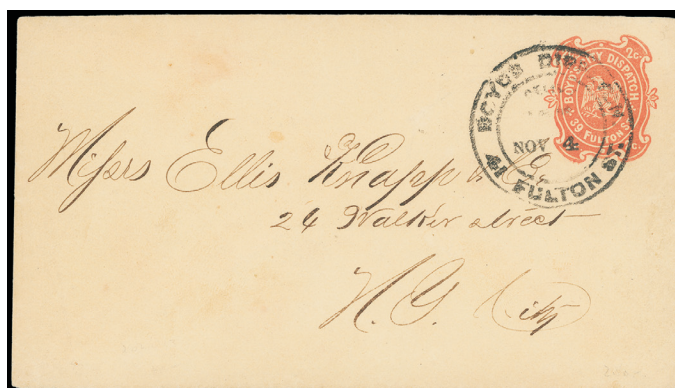 2c.
BOYD'S CITY DISPATCH
39 FULTON ST.
BOYDS DISPATCH
NOV 4
41 FULTON ST
Messrs Ellis Knapp & Co
24 Walker street
N. Y. City